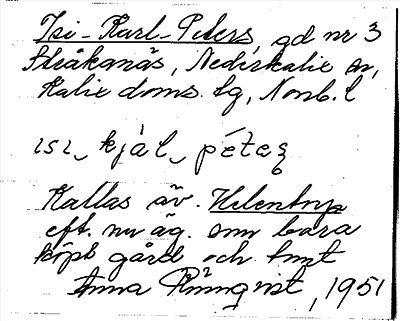 Isi-Karl-Peters, gd nr 3
Stråkanäs, Nederkalix sn,
Kalix doms. lg, Nonb. l
ısı_ kjàl_ péteʐ
Kallas äv. Helentorp
eft. nu äg. som bara
köpt gård och tomt
Anna Rönnqvist, 1951